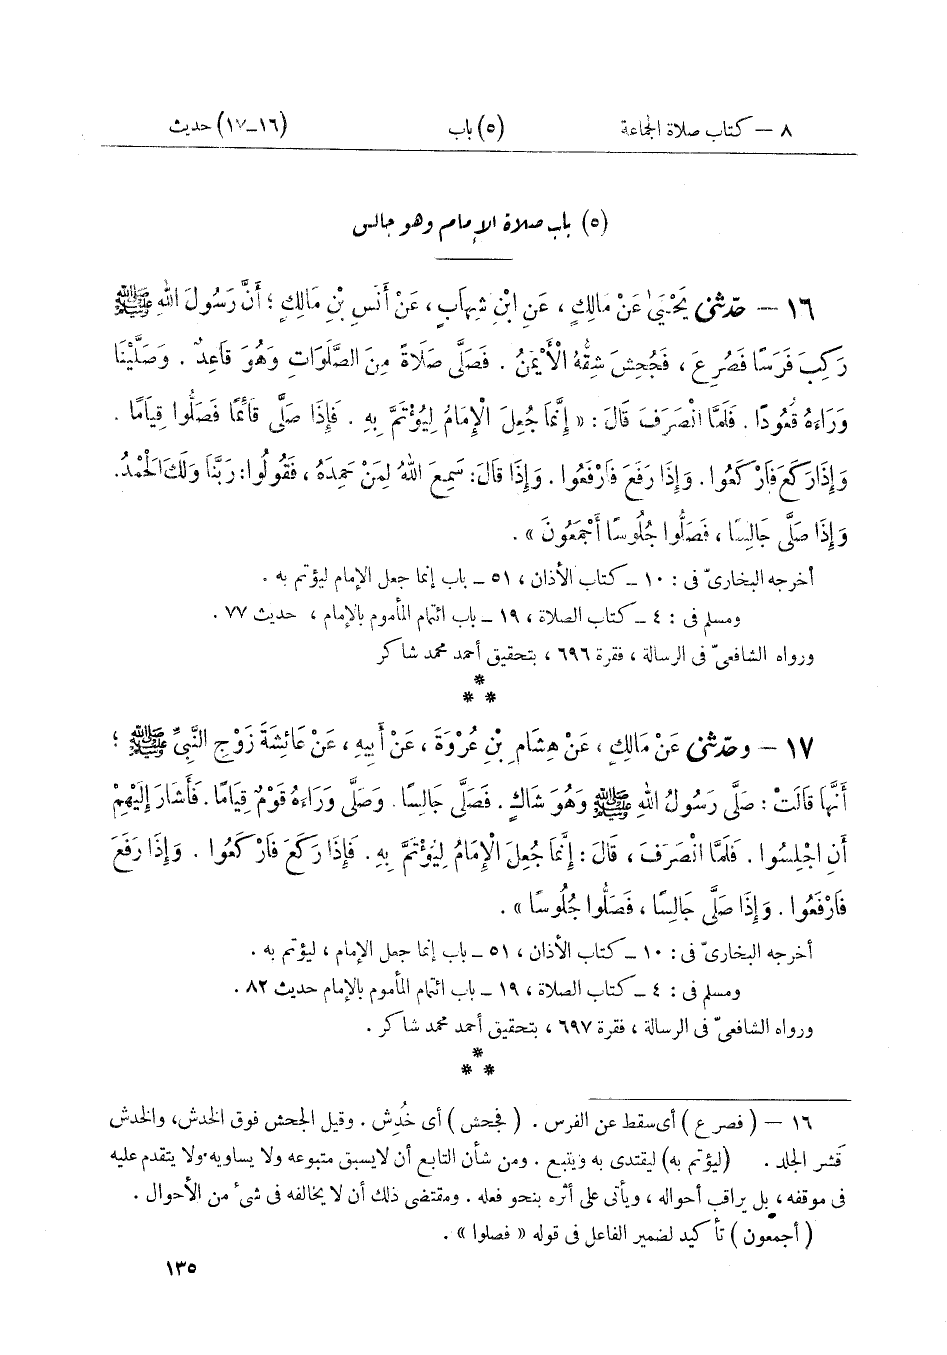 ٨ – كتاب صلاة الجماعة (٥) باب (١٦-١٧) حديث
(٥) باب صلاة الإمام وهو جالس
١٦ – حدّثنى يَحْيَىٰ عَنْ مَالِكٍ ، عَنِ ابْنِ شِهَابٍ ، عَنْ أَنَسِ بْنِ مَالِكٍ ؛ أَنَّ رَسُولَ اللهِ ﷺ
رَكِبَ فَرَسًا فَصُرِعَ ، فَجُحِشَ شِقُّهُ الْأَيْمَنُ . فَصَلَّى صَلَاةً مِنَ الصَّلَوَاتِ وَهُوَ قَاعِدٌ . وَصَلَّيْنَا
وَرَاءَهُ قُعُودًا . فَلَمَّا انْصَرَفَ قَالَ : « إِنَّمَا جُعِلَ الْإِمَامُ لِيُؤْتَمَّ بِهِ . فَإِذَا صَلَّى قَائِمًا فَصَلُّوا قِيَامًا .
وَإِذَا رَكَعَ فَارْكَعُوا . وَإِذَا رَفَعَ فَارْفَعُوا . وَإِذَا قَالَ : سَمِعَ اللهُ لِمَنْ حَمِدَهُ ، فَقُولُوا : رَبَّنَا وَلَكَ الْحَمْدُ .
وَإِذَا صَلَّى جَالِسًا ، فَصَلُّوا جُلُوسًا أَجْمَعُونَ » .
أخرجه البخارىّ فى : ١٠ – كتاب الأذان ، ٥١ – باب إنما جعل الإمام ليؤتم به .
ومسلم فى : ٤ – كتاب الصلاة ، ١٩ – باب ائتمام المأموم بالإمام ، حديث ٧٧ .
ورواه الشافعىّ فى الرسالة ، فقرة ٦٩٦ ، بتحقيق أحمد محمد شاكر
*
* *
١٧ – وحدّثنى عَنْ مَالِكٍ ، عَنْ هِشَامِ بْنِ عُرْوَةَ ، عَنْ أَبِيهِ ، عَنْ عَائِشَةَ زَوْجِ النَّبِيِّ ﷺ ؛
أَنَّهَا قَالَتْ : صَلَّى رَسُولُ اللهِ ﷺ وَهُوَ شَاكٍ . فَصَلَّى جَالِسًا . وَصَلَّى وَرَاءَهُ قَوْمٌ قِيَامًا . فَأَشَارَ إِلَيْهِمْ
أَنِ اجْلِسُوا . فَلَمَّا انْصَرَفَ ، قَالَ : إِنَّمَا جُعِلَ الْإِمَامُ لِيُؤْتَمَّ بِهِ . فَإِذَا رَكَعَ فَارْكَعُوا . وَإِذَا رَفَعَ
فَارْفَعُوا . وَإِذَا صَلَّى جَالِسًا ، فَصَلُّوا جُلُوسًا » .
أخرجه البخارىّ فى : ١٠ – كتاب الأذان ، ٥١ – باب إنما جعل الإمام ، ليؤتم به .
ومسلم فى : ٤ – كتاب الصلاة ، ١٩ – باب ائتمام المأموم بالإمام حديث ٨٢ .
ورواه الشافعىّ فى الرسالة ، فقرة ٦٩٧ ، بتحقيق أحمد محمد شاكر .
*
* *
١٦ – (فصرع) أى سقط عن الفرس . (فجحش) أى خُدِش . وقيل الجحش فوق الخدش، والخدش
قشر الجلد . (ليؤتم به) ليقتدى به ويتبع . ومن شأن التابع أن لا يسبق متبوعه ولا يساويه ولا يتقدم عليه
فى موقفه ، بل يراقب أحواله ، ويأتى على أثره بنحو فعله . ومقتضى ذلك أن لا يخالفه فى شىء من الأحوال .
(أجمعون) تأكيد لضمير الفاعل فى قوله « فصلوا » .
١٣٥